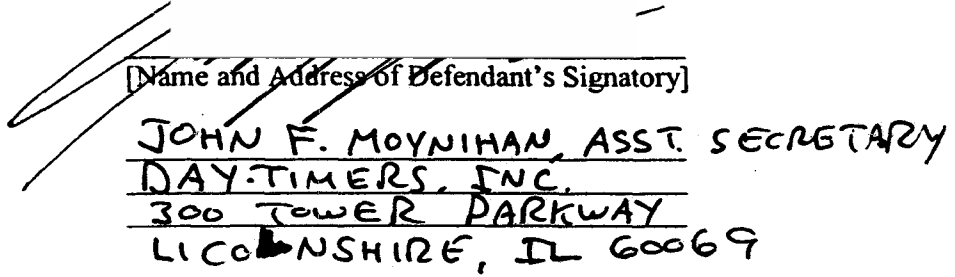 [Name and Address of Defendant's Signatory]
JOHN F. MOYNIHAN, ASST. SECRETARY
DAY-TIMERS, INC.
300 TOWER PARKWAY
LICOLNSHIRE, IL 60069